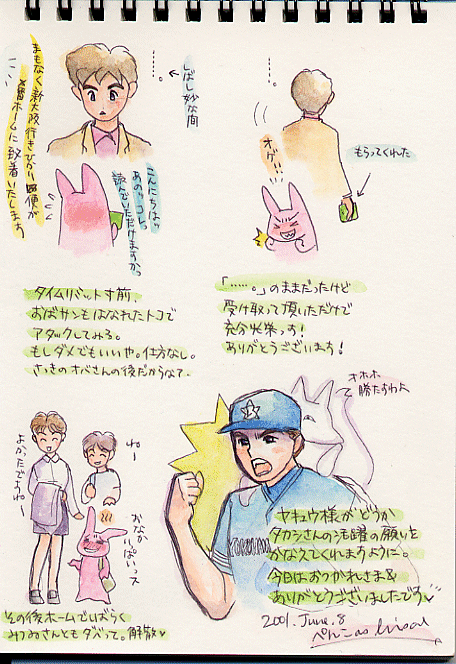 まもなく新大阪行きひかり
番ホームに到着いたします
・・・。
しばし妙な間
こんにちはッ
あのッコレっ
読んでいただけますかっ
・・・。
オゲッ!!
もらってくれた
タイムリミット寸前、
おばサンもはなれたトコで
アタックしてみる。
もしダメでもいいや。仕方なし。
さっきのオバさんの後だからなて。
「・・・・・・。」のままだったけど
受け取って頂いただけで
充分光栄っす!
ありがとうございます!
よかったですねー
ねー
おなか
いっぱいっス
その後ホームでしばらく
みつゐさんともダベって。解散♡
オホホ
勝たすわよ
YOKOHAMA
ヤキュウ様がどうか
タカシさんの活躍の願いを
かなえてくれますように。
今日はおつかれさま&
ありがとうございましたです♡
2001. June. 8